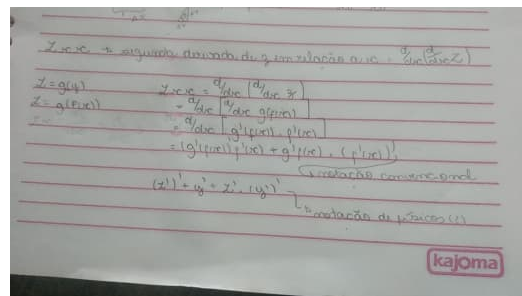 Zxx → segunda derivada de z em relação a x = d/dx(d/dx Z)
Z = g(y)
Z = g(f(x))
Zxx = d/dx [d/dx z]
= d/dx [d/dx g(f(x))]
= d/dx [g'(f(x)) . f'(x)]
= (g'(f(x)))' f'(x) + g'f(x) . (f'(x))'
→ notação convencional
(z')' + y' + z' . (y')'
→ notação de físicos (?)
kajoma